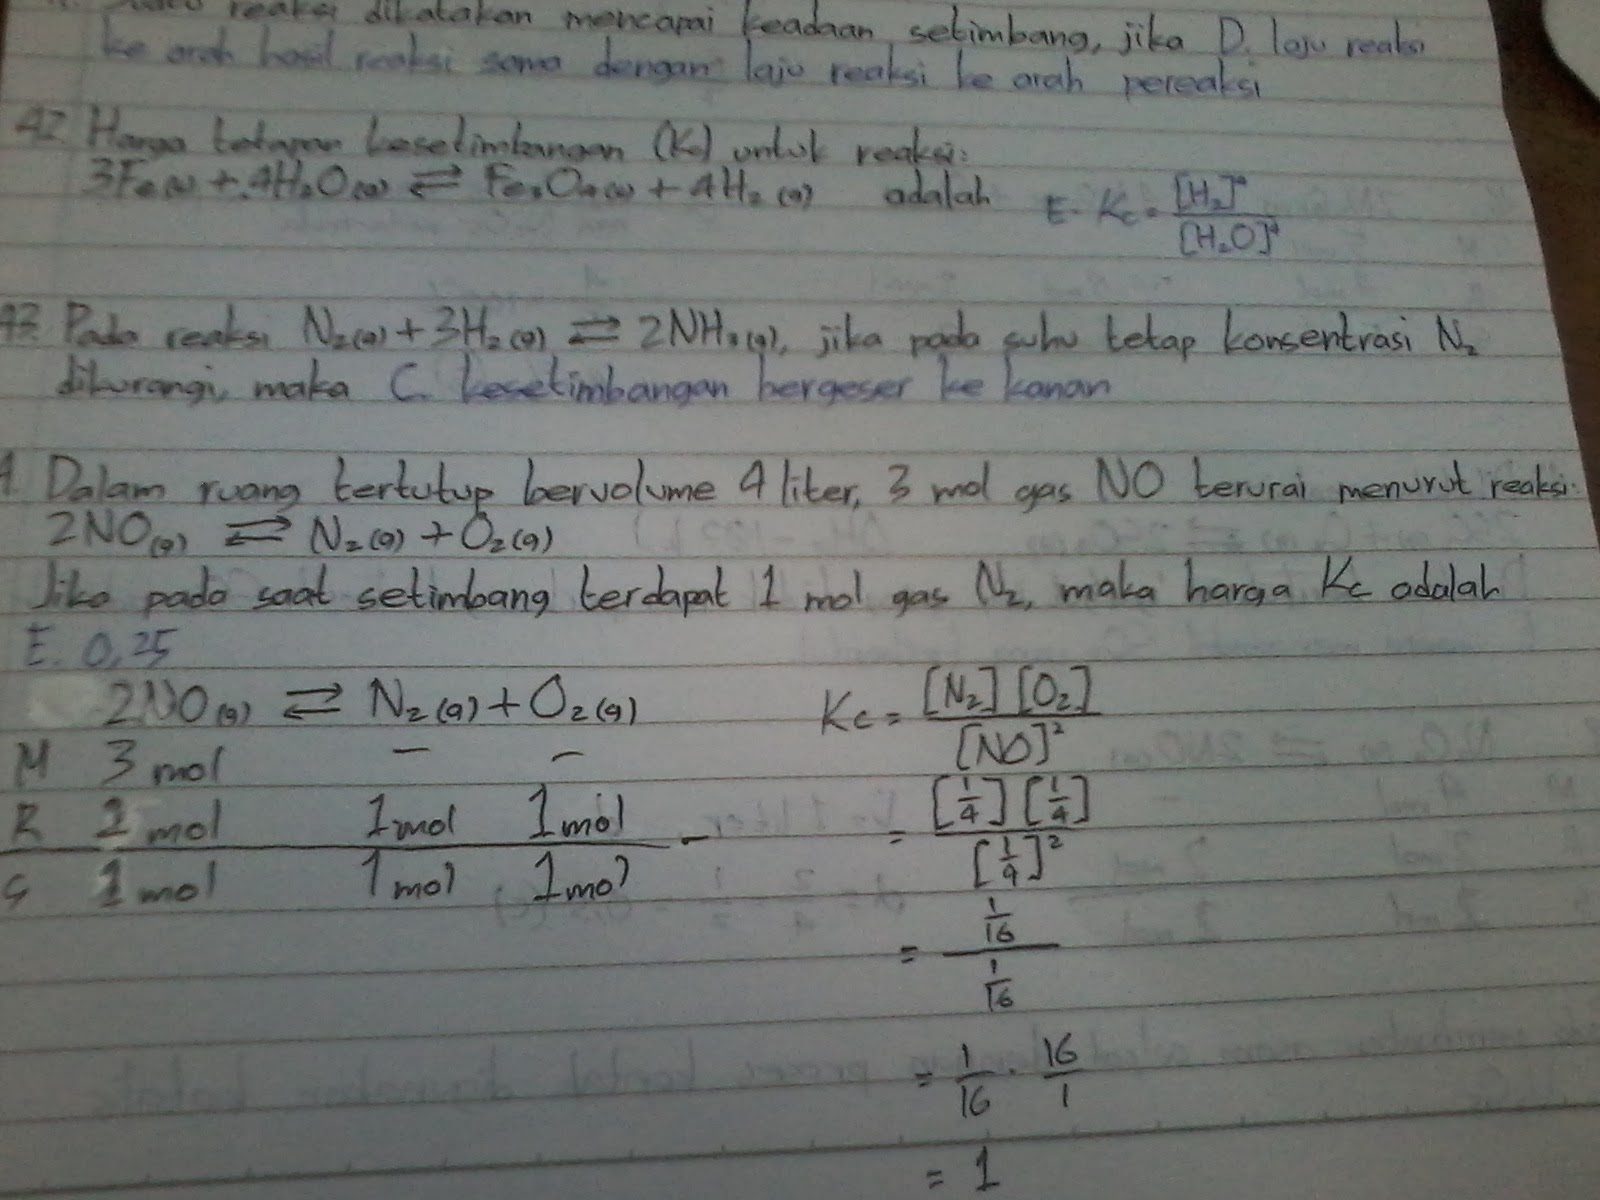 reaksi dikatakan mencapai keadaan setimbang, jika D. laju reaksi
ke arah hasil reaksi sama dengan laju reaksi ke arah pereaksi
42. Harga tetapan kesetimbangan (Kc) untuk reaksi:
3Fe(s) + 4H₂O(g) ⇌ Fe₃O₄(s) + 4H₂(g) adalah E. Kc = [H₂]⁴ / [H₂O]⁴
43. Pada reaksi N₂(g) + 3H₂(g) ⇌ 2NH₃(g), jika pada suhu tetap konsentrasi N₂
dikurangi, maka C. kesetimbangan bergeser ke kanan
Dalam ruang tertutup bervolume 4 liter, 3 mol gas NO terurai menurut reaksi:
2NO(g) ⇌ N₂(g) + O₂(g)
Jika pada saat setimbang terdapat 1 mol gas N₂, maka harga Kc adalah
E. 0,25
2NO(g) ⇌ N₂(g) + O₂(g) Kc = [N₂][O₂] / [NO]²
M 3 mol - -
R 2 mol 1 mol 1 mol - = [1/4][1/4] / [1/4]²
S 1 mol 1 mol 1 mol
= 1/16 / 1/16
= 1/16 . 16/1
= 1